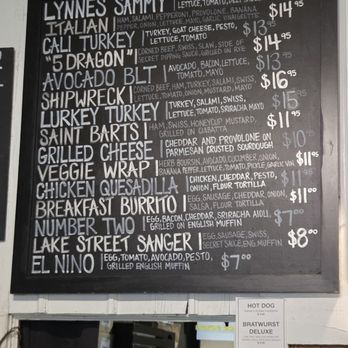 LYNNES SAMMY LETTUCE, TOMATO,
ITALIAN HAM, SALAMI, PEPPERONI, PROVOLONE, BANANA $14.95
PEPPER, ONION, LETTUCE, MAYO, GARLIC VINAIGRETTE
CALI TURKEY TURKEY, GOAT CHEESE, PESTO, $13
LETTUCE, TOMATO
"5 DRAGON" CORNED BEEF, SWISS, SLAW, SIDE OF $14.95
SECRET DIPPING SAUCE, GRILLED ON RYE
AVOCADO BLT AVOCADO, BACON, LETTUCE, $13
TOMATO, MAYO
SHIPWRECK CORNED BEEF, HAM, TURKEY, SALAMI, SWISS, $16.95
LETTUCE, TOMATO, ONION, MUSTARD, MAYO
LURKEY TURKEY TURKEY, SALAMI, SWISS, $15
LETTUCE, TOMATO, SRIRACHA MAYO
SAINT BARTS HAM, SWISS, HONEYCUP MUSTARD, $11
GRILLED ON CIABATTA
GRILLED CHEESE CHEDDAR AND PROVOLONE ON $10
PARMESAN CRUSTED SOURDOUGH
VEGGIE WRAP HERB BOURSIN, AVOCADO, CUCUMBER, ONION, $11.95
BANANA PEPPER, LETTUCE, TOMATO, PICKLE, GARLIC VIN.
CHICKEN QUESADILLA CHICKEN, CHEDDAR, PESTO, $11.95
ONION, FLOUR TORTILLA
BREAKFAST BURRITO EGG, SAUSAGE, CHEDDAR, ONION, $11.00
SALSA, FLOUR TORTILLA
NUMBER TWO EGG, BACON, CHEDDAR, SRIRACHA AIOLI, $7.00
GRILLED ON ENGLISH MUFFIN
LAKE STREET SANGER EGG, SAUSAGE, SWISS, $8.00
SECRET SAUCE, ENG. MUFFIN
EL NINO EGG, TOMATO, AVOCADO, PESTO, $7.00
GRILLED ENGLISH MUFFIN
HOT DOG
BRATWURST
DELUXE